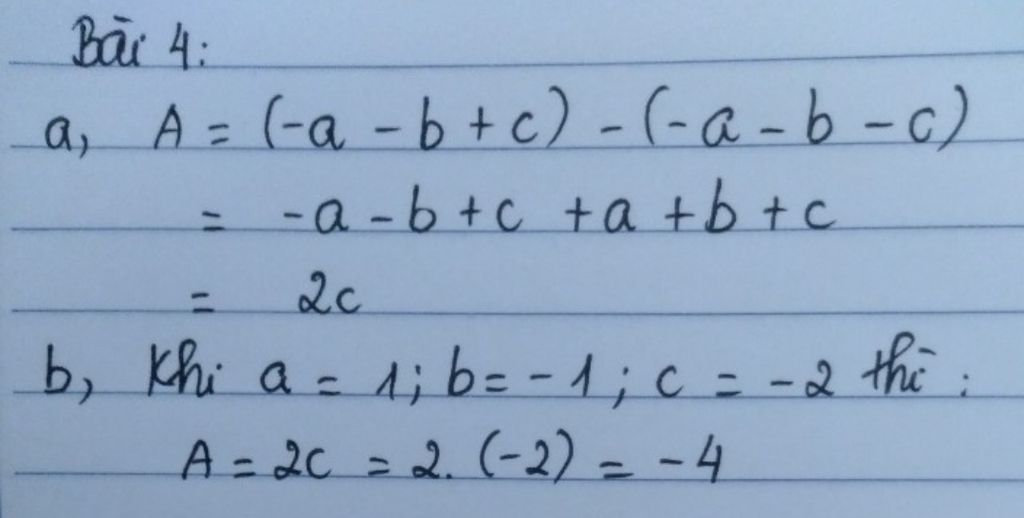 Bài 4:
a, A = (-a - b + c) - (-a - b - c)
= -a - b + c + a + b + c
= 2c
b, Khi a = 1; b = -1; c = -2 thì:
A = 2c = 2. (-2) = -4